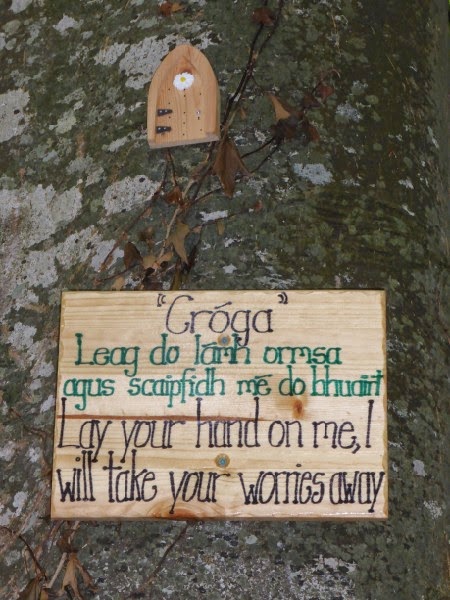 "Cróga"
Leag do lámh ormsa
agus scaipfidh mé do bhuairt
Lay your hand on me, I
will take your worries away